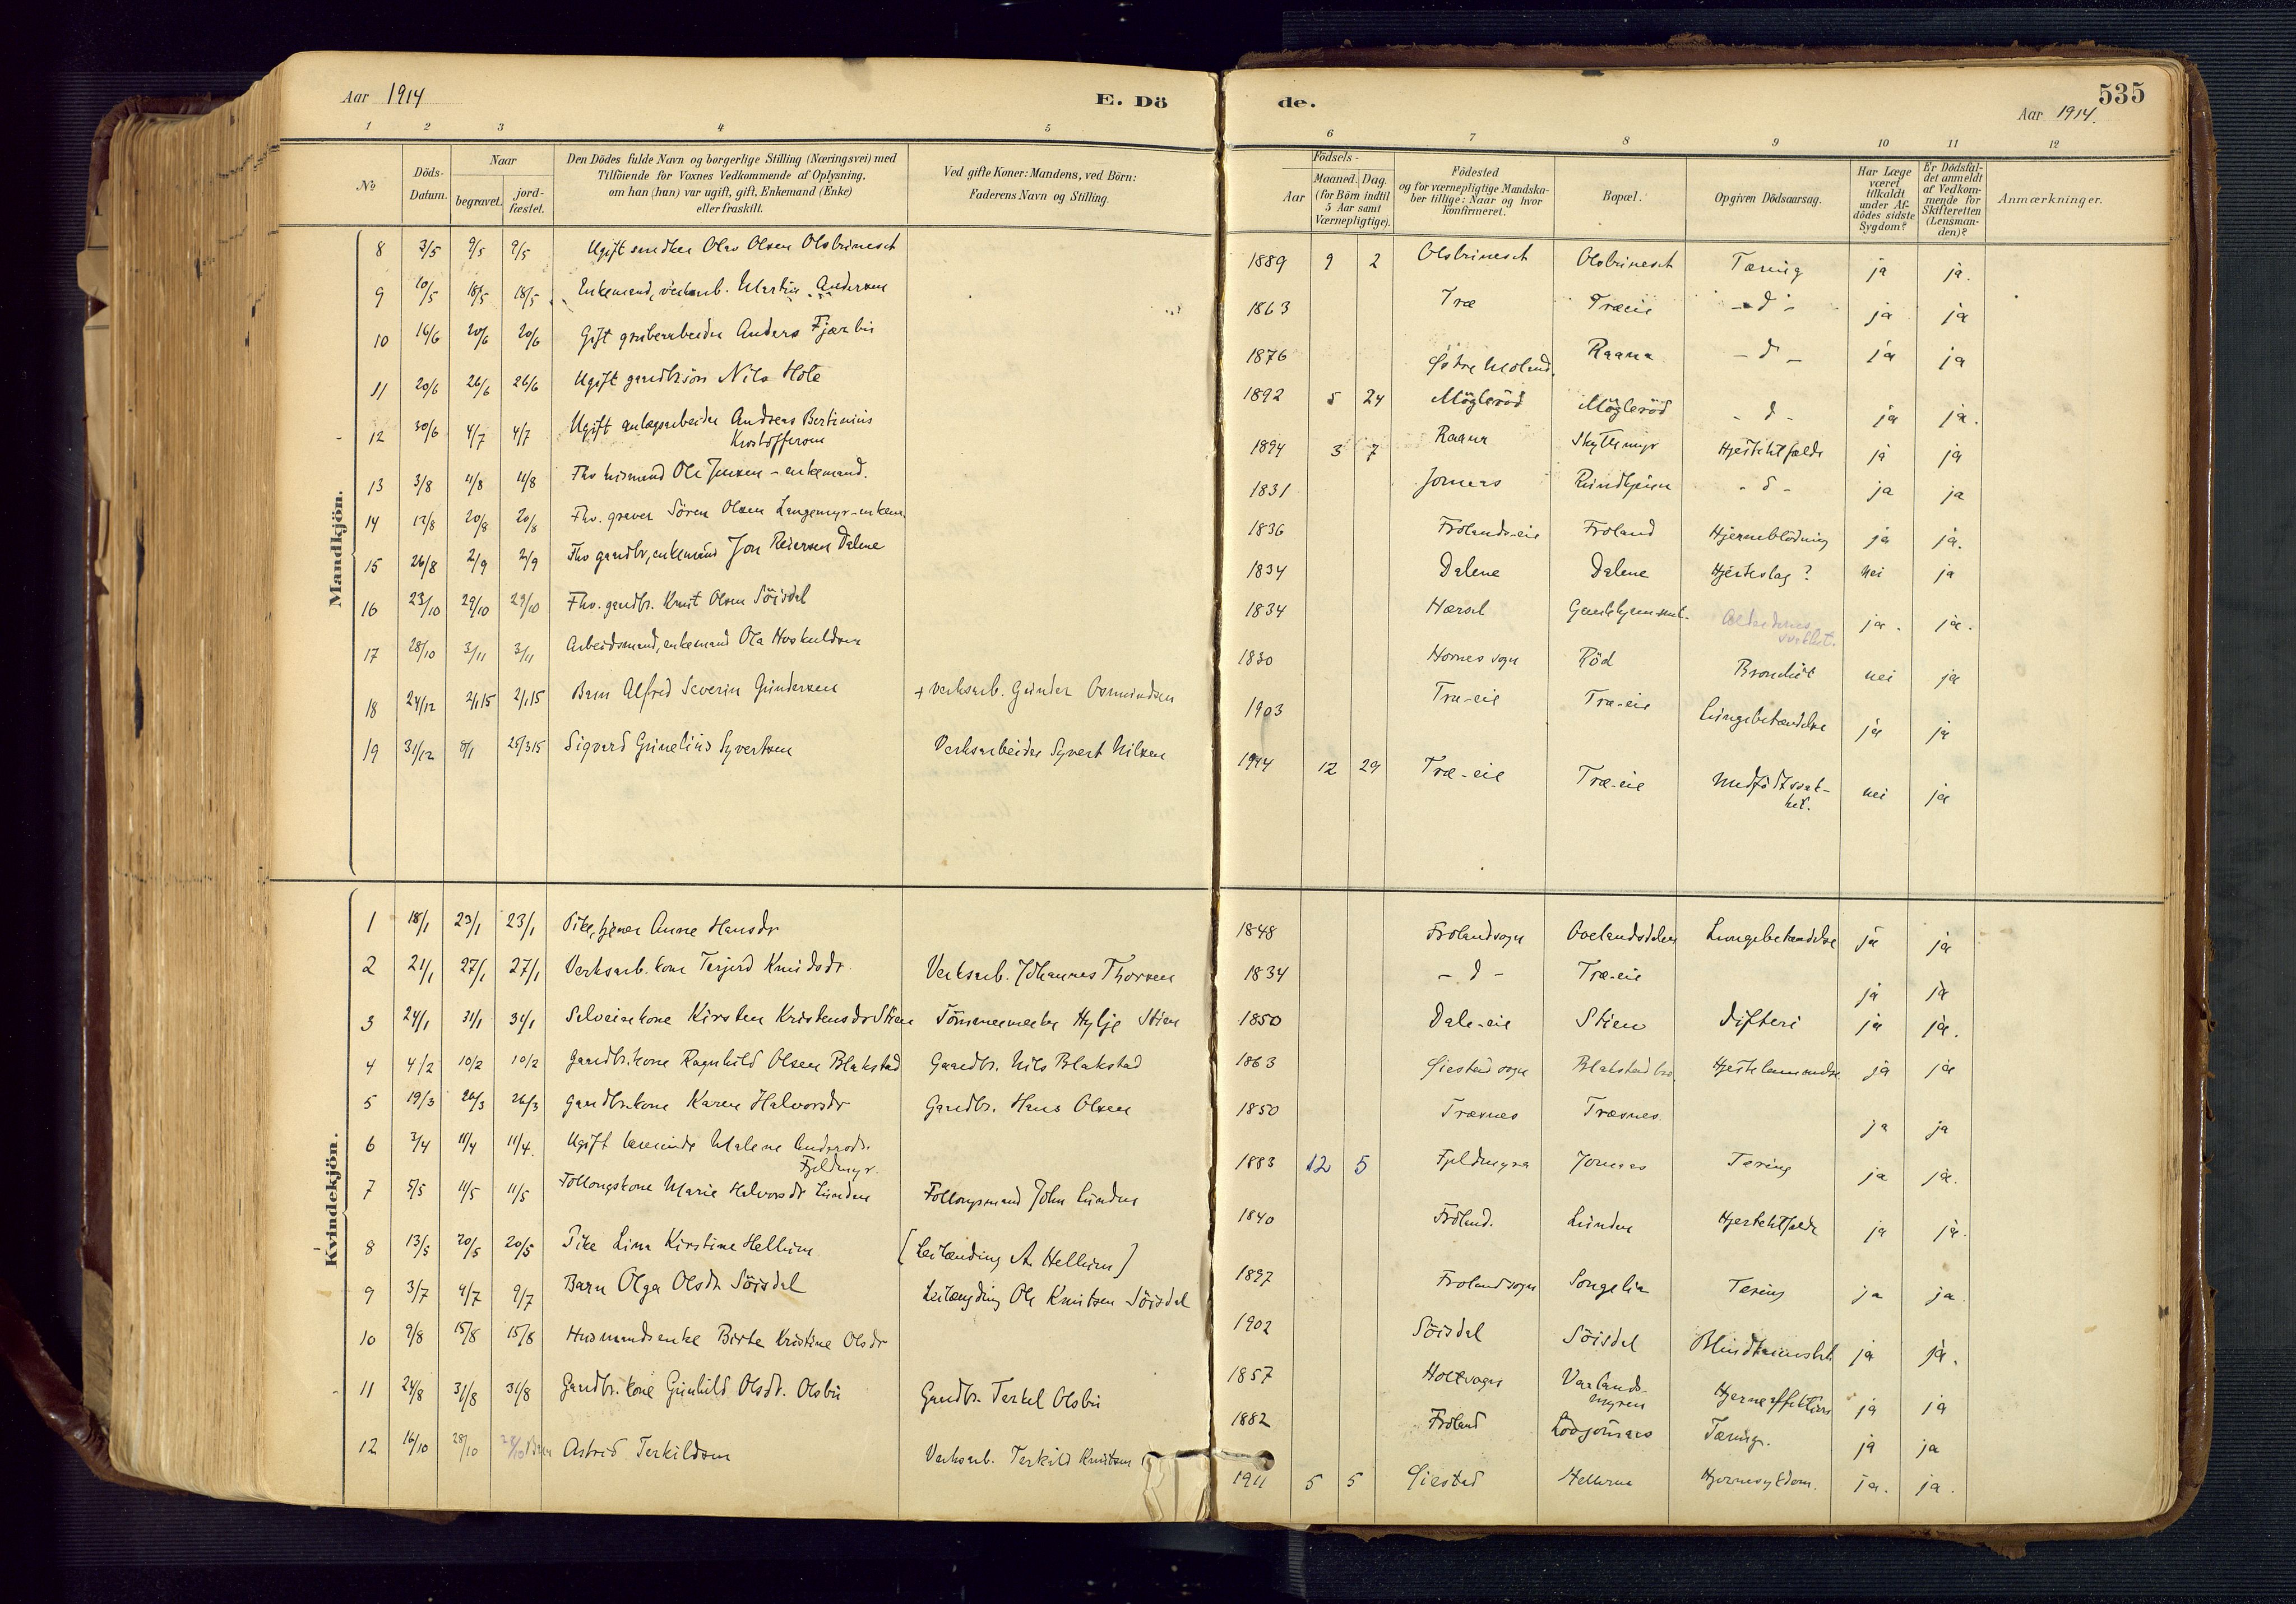 Aar 1914
E. Dö
de.
535
Aar 1914.
1 2 3 4 5 6 7 8 9 10 11 12
No
Döds-Datum.
Naar
begravet.
jord-fæstet.
Den Dödes fulde Navn og borgerlige Stilling (Næringsvei) med
Tilföiende for Voxnes Vedkommende af Oplysning,
om han (hun) var ugift, gift, Enkemand (Enke)
eller fraskilt.
Ved gifte Koner: Mandens, ved Börn:
Faderens Navn og Stilling.
Födsels-
Aar
Maaned. Dag.
(for Börn indtil
5 Aar samt
Værnepligtige).
Födested
og for værnepligtige Mandska-
ber tillige: Naar og hvor
konfirmeret.
Bopæl.
Opgiven Dödsaarsag.
Har Læge
været
tilkaldt
under Af-
dödes sidste
Sygdom?
Er Dödsfal-
det anmeldt
af Vedkom-
mende for
Skifteretten
(Lensman-
den)?
Anmærkninger.
Mandkjön.
8 3/5 9/5 9/5 Ugift Olav Olsen Olsbrineset 1889 9 2 Olsbrineset Olsbrineset Tæring ja ja.
9 10/5 18/5 18/5 Enkemand, verksarb. Martin Andersen 1863 Træ Træeie - d - ja ja
10 16/6 20/6 20/6 Gift grubearbeider Anders Fjærbu 1876 Østre Moland. Raana - d - ja ja
11 20/6 26/6 26/6 Ugift gaardbr.sön Nils Hole 1892 5 24 Mögleröd Mögleröd - d - ja ja.
12 30/6 4/7 4/7 Ugift anlægsarbeider Andreas Bertinius
Kristoffersen 1894 3 7 Raana Skyttemyr ja ja
13 3/8 11/8 11/8 Fhv husmand Ole Jensen - enkemand. 1831 Jomaas - d - ja ja
14 12/8 20/8 20/8 Fhv. graver Sören Olsen Langemyr - enkem. 1836 Frolands-eie Froland Hjerneblödning ja ja.
15 26/8 2/9 2/9 Fhv gaardbr, enkemand Jon Reiersen Dalene 1834 Dalene Dalene Hjerteslag? nei ja
16 23/10 29/10 29/10 Fhv. gaardbr. Knut Olsen Söisdal 1834 Alderdoms
svakhet. ja. ja.
17 28/10 3/11 3/11 Arbeidsmand, enkemand Ola Hoskuldsen 1830 Hornes sogn Röd Bronchit nei ja
18 24/12 2/1 15 2/1 15 Barn Alfred Severin Gundersen + verksarb. Gunder Osmundsen 1903 Træ-eie Træ-eie Lungebetændelse ja ja
19 31/12 8/1 28/3 15 Sigvard Gunelius Syvertsen Verksarbeider Syvert Nilsen 1914 12 29 Træ-eie Træ-eie Medfödt svak-
het. nei ja
Kvindekjön.
1 18/1 23/1 23/1 Pike, tjener Anne Hansdr 1848 Frolandsogn Ovelandsdalen Lungebetændelse ja ja
2 21/1 27/1 27/1 Verksarb. kone Terjerd Knudsdr. Verksarb. Johannes Thorsen 1834 - d - Træ-eie ja ja
3 24/1 31/1 31/1 Selveierkone Kirsten Kristensdr Stien Tömmermerker Hylje Stien 1850 Dale-eie Stien Difteri ja ja.
4 4/2 10/2 10/2 Gaardbr.kone Ragnhild Olsen Blakstad Gaardbr. Nils Blakstad 1863 Öiestad sogn Blakstad Hjertelammelse ja ja
5 19/3 26/3 26/3 Gaardbr.kone Karen Halvorsdr Gaardbr. Hans Olsen 1850 Træsnes Træsnes. ja ja
6 3/4 11/4 11/4. Ugift lærerinde Malene Andersdr.
Fjeldmyr. 1883 12 5 Fjeldmyra Jomaas Tæring ja ja.
7 5/5 11/5 11/5 Follougskone Marie Halvorsdr Lunden Follougsmand John Lunden 1840 Froland. Lunden ja ja.
8 13/5 20/5 20/5 Pike Lina Kirstine Hellum [Leilænding A. Hellum] 1897 Frolandsogn Songelia Tæring ja ja
9 3/7 9/7 9/7 Barn Olga Olsdr Söisdal Leilænding Ole Knutsen Söisdal 1902 Söisdal Söisdal Blindtarmsbet. ja ja.
10 9/8 15/8 15/8 Husmandsenke Birte Kristine Olsdr 1857 Holtsogn Vaslands-
myren ja ja
11 24/8 31/8 31/8 Gaardbr.kone Gunhild Olsdr. Olsbu Gaardbr. Terkel Olsbu 1882 Froland Lövjomaas Tæring. ja ja
12 16/10 28/10 28/10 Barn Astrid Terkildsen Verksarb. Terkild Knutsen 1911 5 5 Öiestad Hjernesykdom. ja. ja.